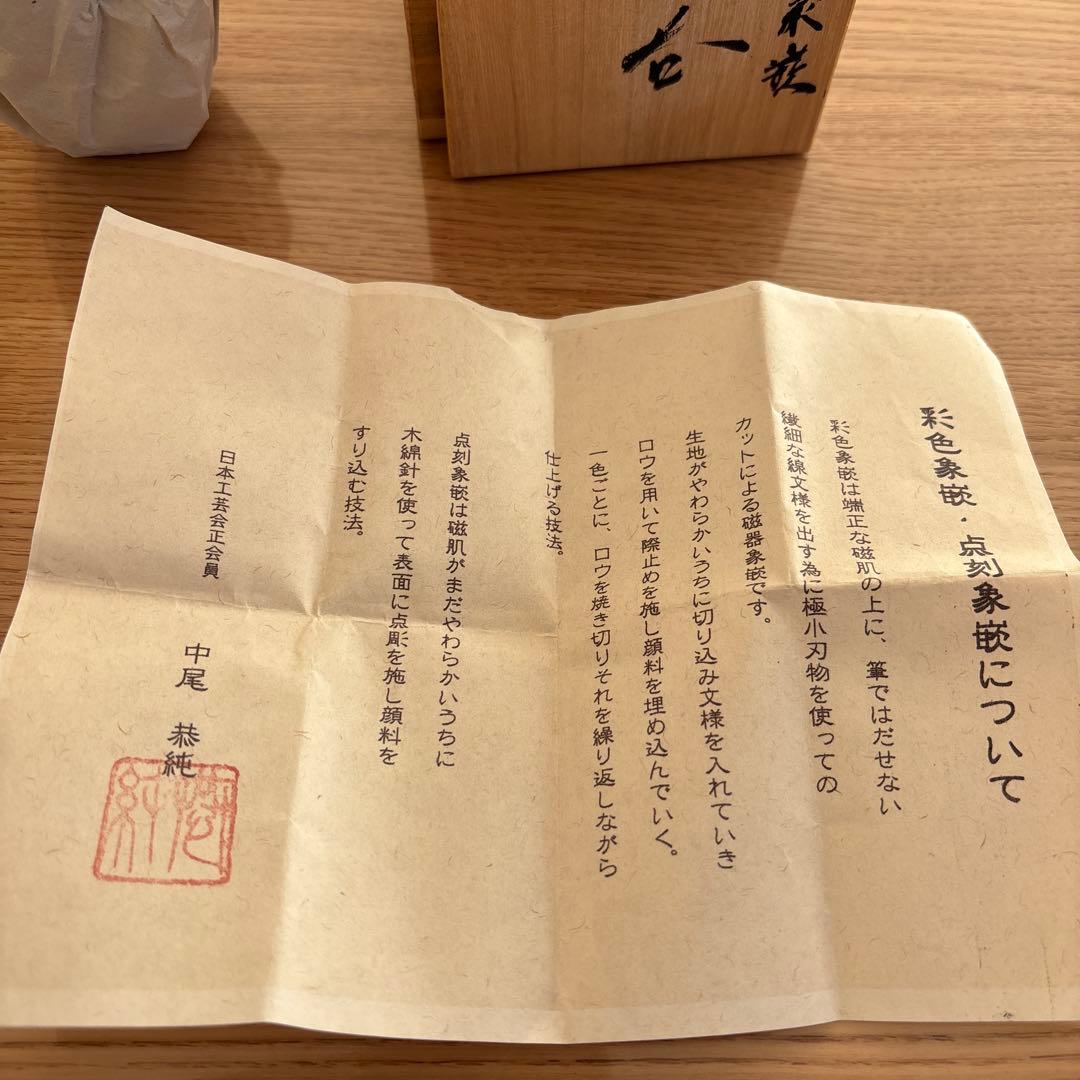 象嵌
合
彩色象嵌・点刻象嵌について
彩色象嵌は端正な磁肌の上に、筆ではだせない
繊細な線文様を出す為に極小刃物を使っての
カットによる磁器象嵌です。
生地がやわらかいうちに切り込み文様を入れていき
ロウを用いて際止めを施し顔料を埋め込んでいく。
一色ごとに、ロウを焼き切りそれを繰り返しながら
仕上げる技法。
点刻象嵌は磁肌がまだやわらかいうちに
木綿針を使って表面に点彫を施し顔料を
すり込む技法。
日本工芸会正会員
中尾 恭純
恭純